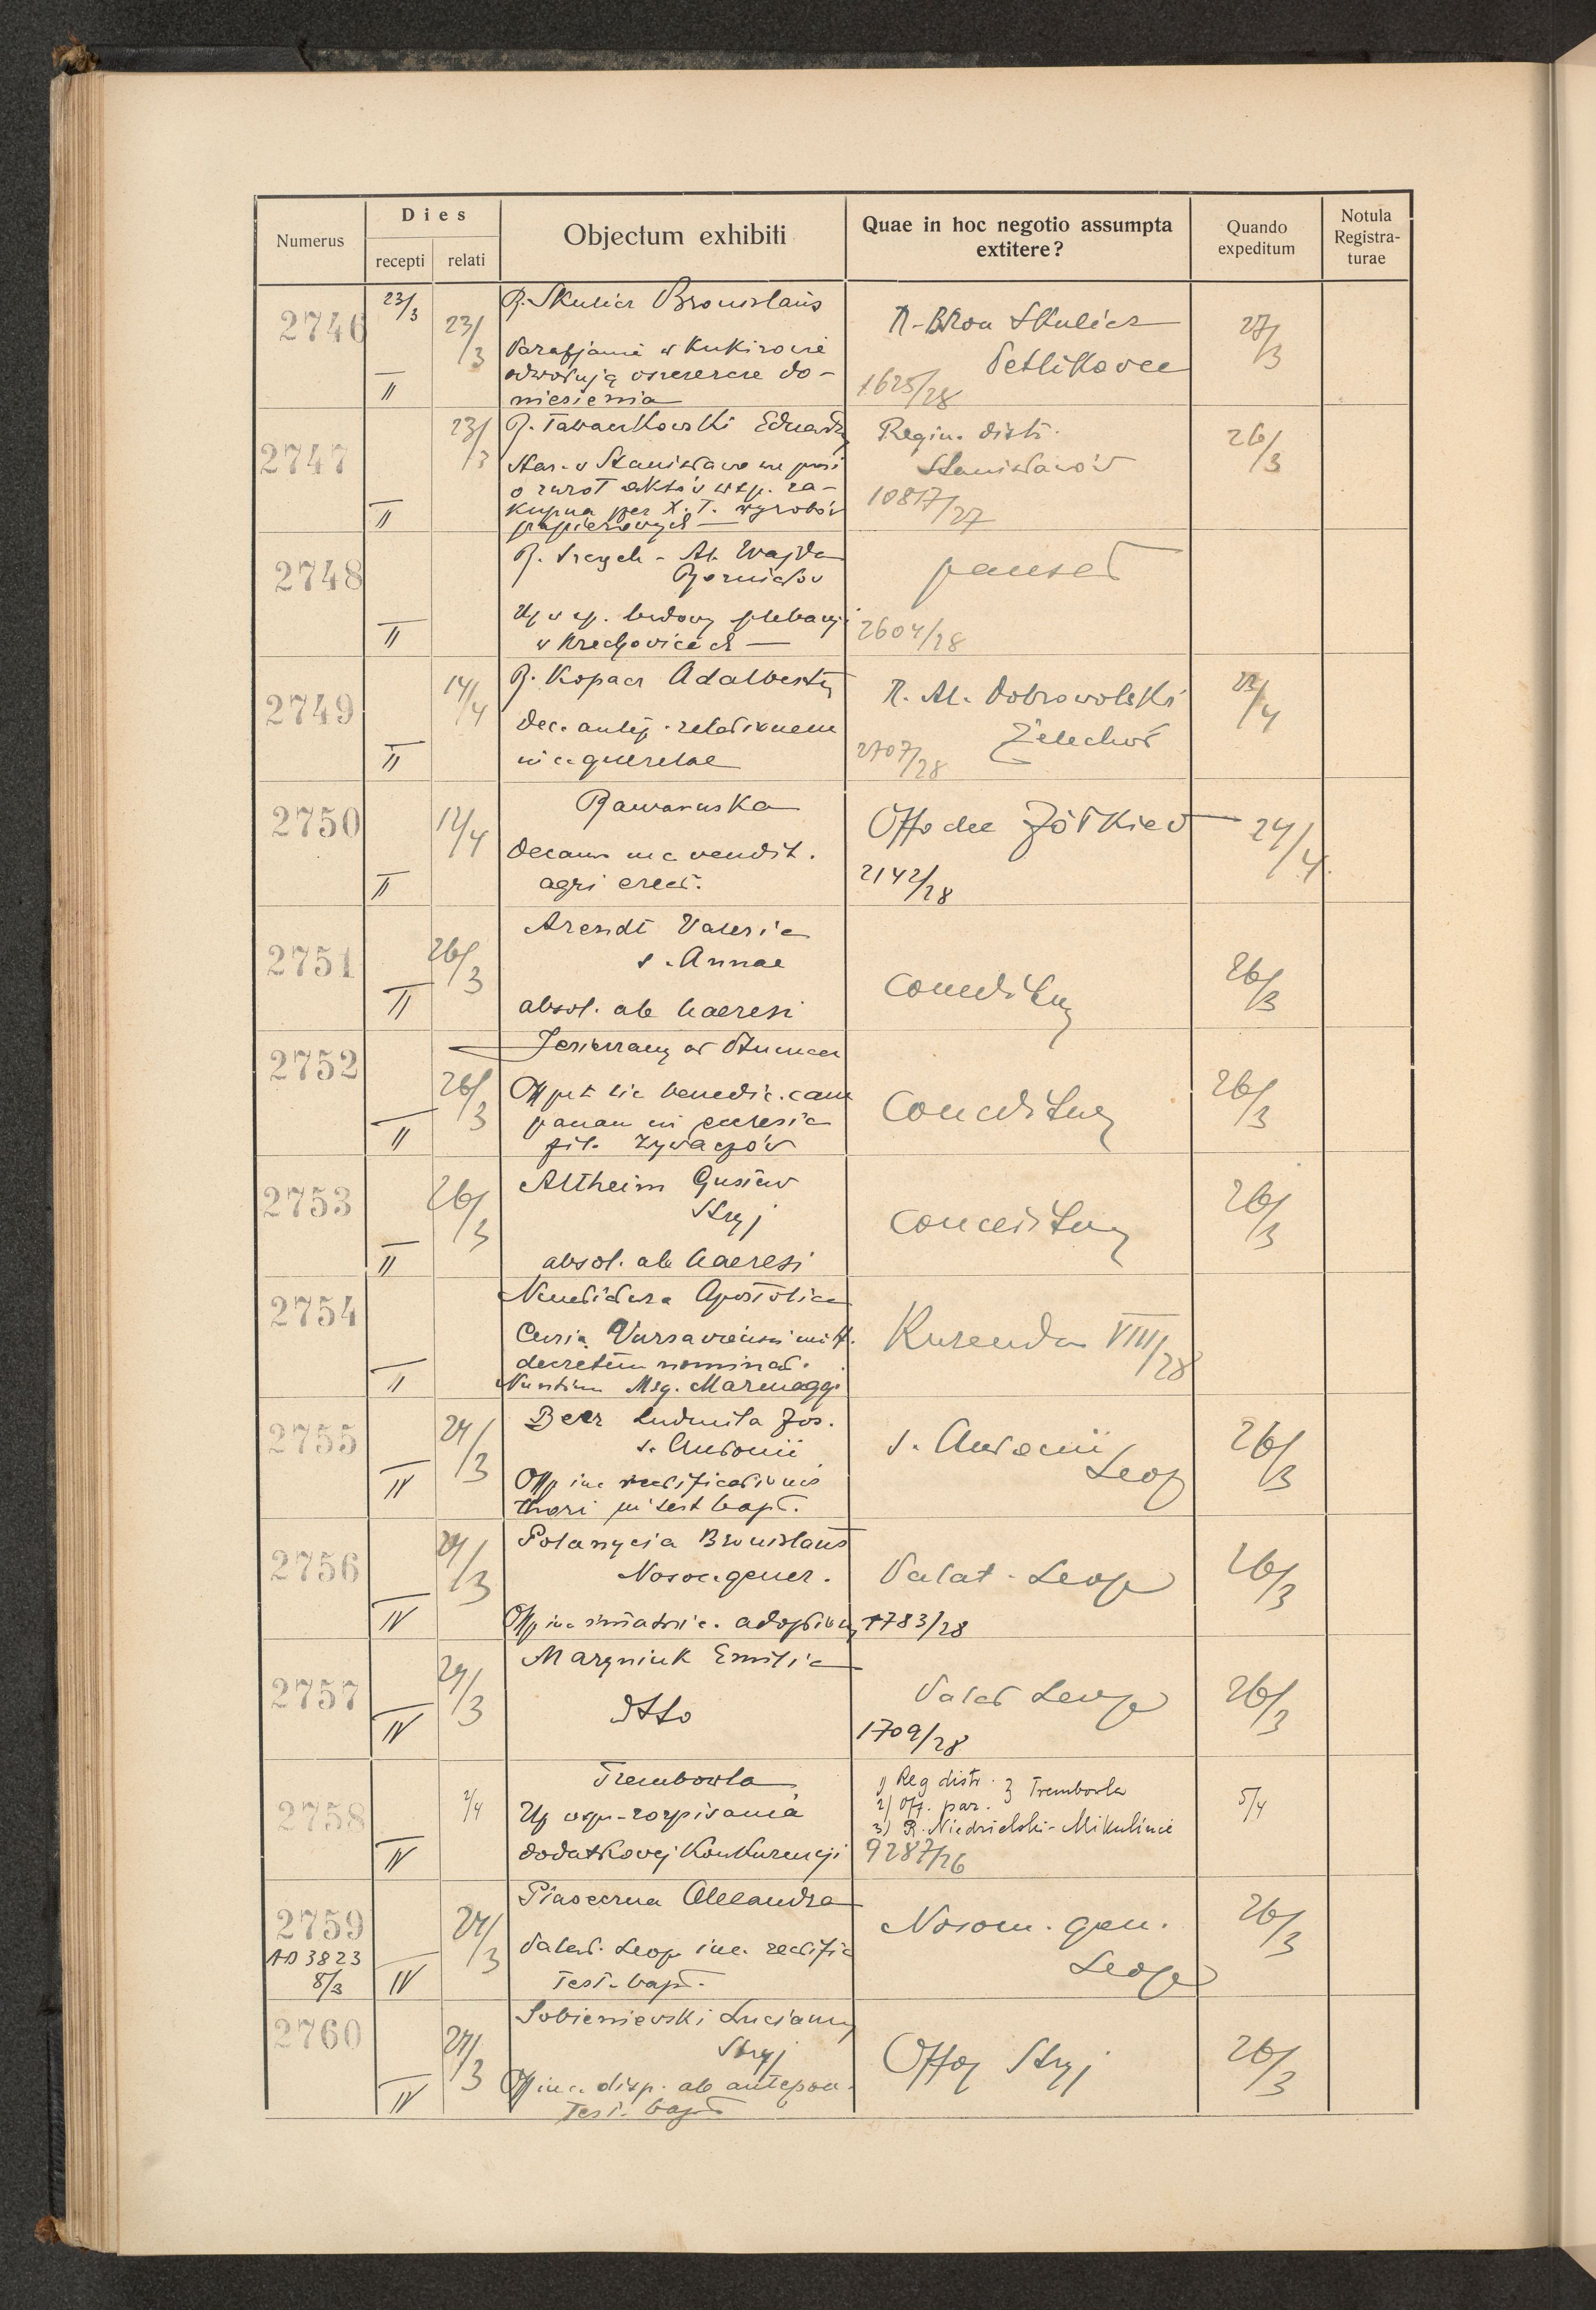 Numerus
Dies
recepti relati
Objectum exhibiti
Quae in hoc negotio assumpta
extitere?
Quando
expeditum
Notula
Registra-
turae
2746 23/3 23/3 II
R. Skulicz Bronislaus
Parafjanie w Kukizowie
odwołują oszczercze do-
niesienia
R. Bron Skulicz
Petlikovce
1625/28
27/3
2747 23/3 II
R. Tawankowski Eduardy
Star. w Stanisławowie prosi
o zwrot aktów wsp. za-
kupna per X. T. wyrobów
papierowych
Regim. distr.
Stanisławów
10817/27
26/3
2748 II
Al. Wajda
Up w sp. budowy plebanji
w Krechovicach
2604/28
2749 14/4 II
R. Kopacz Adalbertus
Dec. relationem
querelae
R. Al. Dobrowolski
Żelechów
2707/28
2750 12/4 II
Rawaruska
Decanus vendit.
agri erect.
Żółkiew
2142/28
24/4
2751 26/3 II
Arendt Valeria
s. Annae
absol. ab haeresi
conceditur
26/3
2752 26/3 II
Jezierzany
Off pet lic benedic. cam
panam in ecclesia
fil. Żywaczów
conceditur
26/3
2753 26/3 II
Altheim Gustav
Stryj
absol. ab haeresi
conceditur
26/3
2754 II
Nuntiatura Apostolica
Curia Varsaviensi mitt.
decretum nominat.
Nuntium Msg. Marmaggi
Kurenda VIII/28
2755 24/3 IV
Beer Ludmila Jos.
s. Antonii
Off inc rectificationis
thori in test bapt.
s. Antonii
Leop
26/3
2756 24/3 IV
Polanycia Bronislaus
Nosoc. gener.
Off inc immatric. adoptionis
Palat. Leop
1783/28
26/3
2757 24/3 IV
Maryniuk Emilia
dtto
Palat Leop
1709/28
26/3
2758 2/4 IV
Trembowla
Up wsp. rozpisania
dodatkovej Konkurencji
1) Reg distr.
2) off. par. } Trembowla
3) R. Niedzielski - Mikulince
9287/26
5/4
2759 24/3 IV
AD 3823
8/3
Piaseczna Alexandra
Palat. Leop inc. rectific
test. bapt.
Nosom. gen.
Leop
26/3
2760 24/3 IV
Sobieniewski Lucianus
Stryj
Off inc. disp. ab
test. bapt
Stryj
26/3